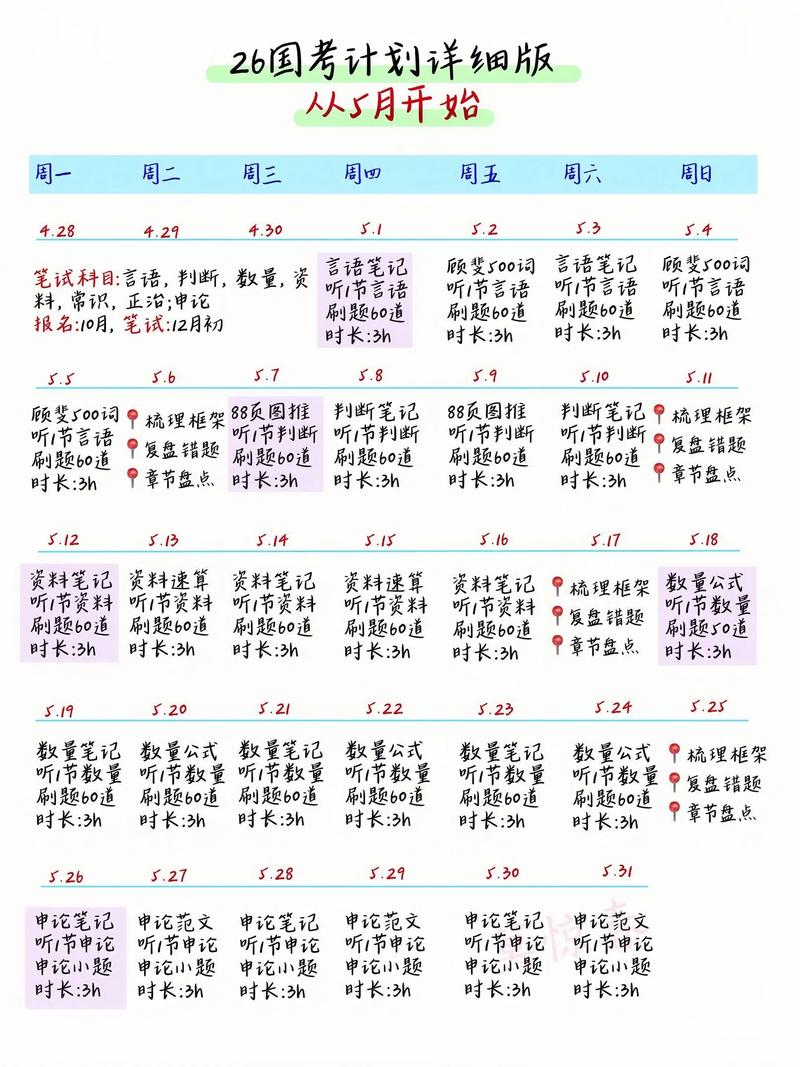 26国考计划详细版
从5月开始
周一 周二 周三 周四 周五 周六 周日
4.28 4.29 4.30 5.1 5.2 5.3 5.4
笔试科目:言语,判断,数量,资
料,常识,正治;申论
报名:10月,笔试:12月初
言语笔记
听1节言语
刷题60道
时长:3h
顾斐500词
听1节言语
刷题60道
时长:3h
言语笔记
听1节言语
刷题60道
时长:3h
顾斐500词
听1节言语
刷题60道
时长:3h
5.5 5.6 5.7 5.8 5.9 5.10 5.11
顾斐500词
听1节言语
刷题60道
时长:3h
梳理框架
复盘错题
章节盘点
88页图推
听1节判断
刷题60道
时长:3h
判断笔记
听1节判断
刷题60道
时长:3h
88页图推
听1节判断
刷题60道
时长:3h
判断笔记
听1节判断
刷题60道
时长:3h
梳理框架
复盘错题
章节盘点
5.12 5.13 5.14 5.15 5.16 5.17 5.18
资料笔记
听1节资料
刷题60道
时长:3h
资料速算
听1节资料
刷题60道
时长:3h
资料笔记
听1节资料
刷题60道
时长:3h
资料速算
听1节资料
刷题60道
时长:3h
资料笔记
听1节资料
刷题60道
时长:3h
梳理框架
复盘错题
章节盘点
数量公式
听1节数量
刷题50道
时长:3h
5.19 5.20 5.21 5.22 5.23 5.24 5.25
数量笔记
听1节数量
刷题60道
时长:3h
数量公式
听1节数量
刷题60道
时长:3h
数量笔记
听1节数量
刷题60道
时长:3h
数量公式
听1节数量
刷题60道
时长:3h
数量笔记
听1节数量
刷题60道
时长:3h
数量公式
听1节数量
刷题60道
时长:3h
梳理框架
复盘错题
章节盘点
5.26 5.27 5.28 5.29 5.30 5.31
申论笔记
听1节申论
申论小题
时长:3h
申论范文
听1节申论
申论小题
时长:3h
申论笔记
听1节申论
申论小题
时长:3h
申论范文
听1节申论
申论小题
时长:3h
申论笔记
听1节申论
申论小题
时长:3h
申论范文
听1节申论
申论小题
时长:3h